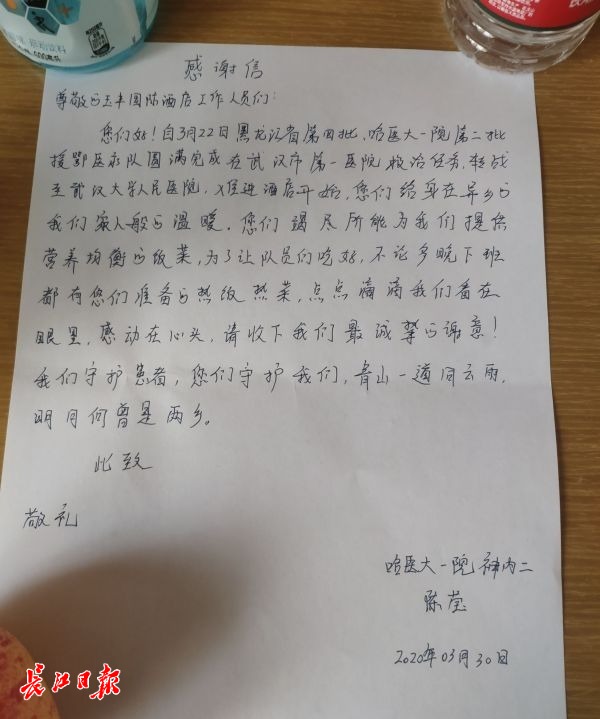 感谢信
尊敬的玉丰国际酒店工作人员们:
您们好!自3月22日黑龙江省第四批、哈医大一院第二批
援鄂医疗队圆满完成在武汉市第一医院救治任务,转战
至武汉大学人民医院,对进酒店开始,您们给身在异乡的
我们家人般的温暖。您们竭尽所能为我们提供
营养均衡的饭菜,为了让队员们吃好,不论多晚下班
都有您们准备的热饭热菜,点点滴滴我们看在
眼里,感动在心头,请收下我们最诚挚的谢意!
我们守护患者,您们守护我们,青山一道同云雨,
明月何曾是两乡。
此致
敬礼
哈医大一院神内二
陈莹
2020年03月30日
长江日报